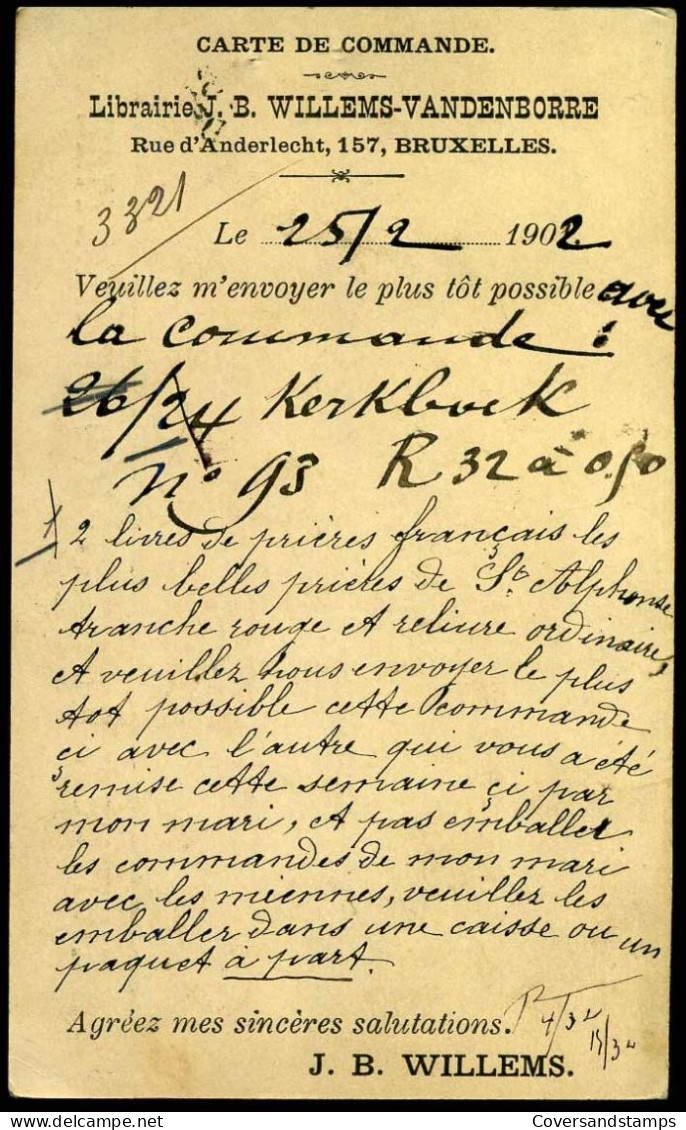 CARTE DE COMMANDE.
Librairie J. B. WILLEMS-VANDENBORRE
Rue d'Anderlecht, 157, BRUXELLES.
3321
Le 25/2 1902
Veuillez m'envoyer le plus tôt possible avec
la commande :
26/24 Kerkboek
No 93 R 32 à 0.50
2 livres de prières français les
plus belles prières de St. Alphonse
tranche rouge et reliure ordinaire,
et veuillez nous envoyer le plus
tot possible cette commande
ci avec l'autre qui vous a été
remise cette semaine çi par
mon mari, et pas emballer
les commandes de mon mari
avec les miennes, veuillez les
emballer dans une caisse ou un
paquet à part.
Agréez mes sincères salutations.
4/32
15/32
J. B. WILLEMS.
CoversandStamps.com